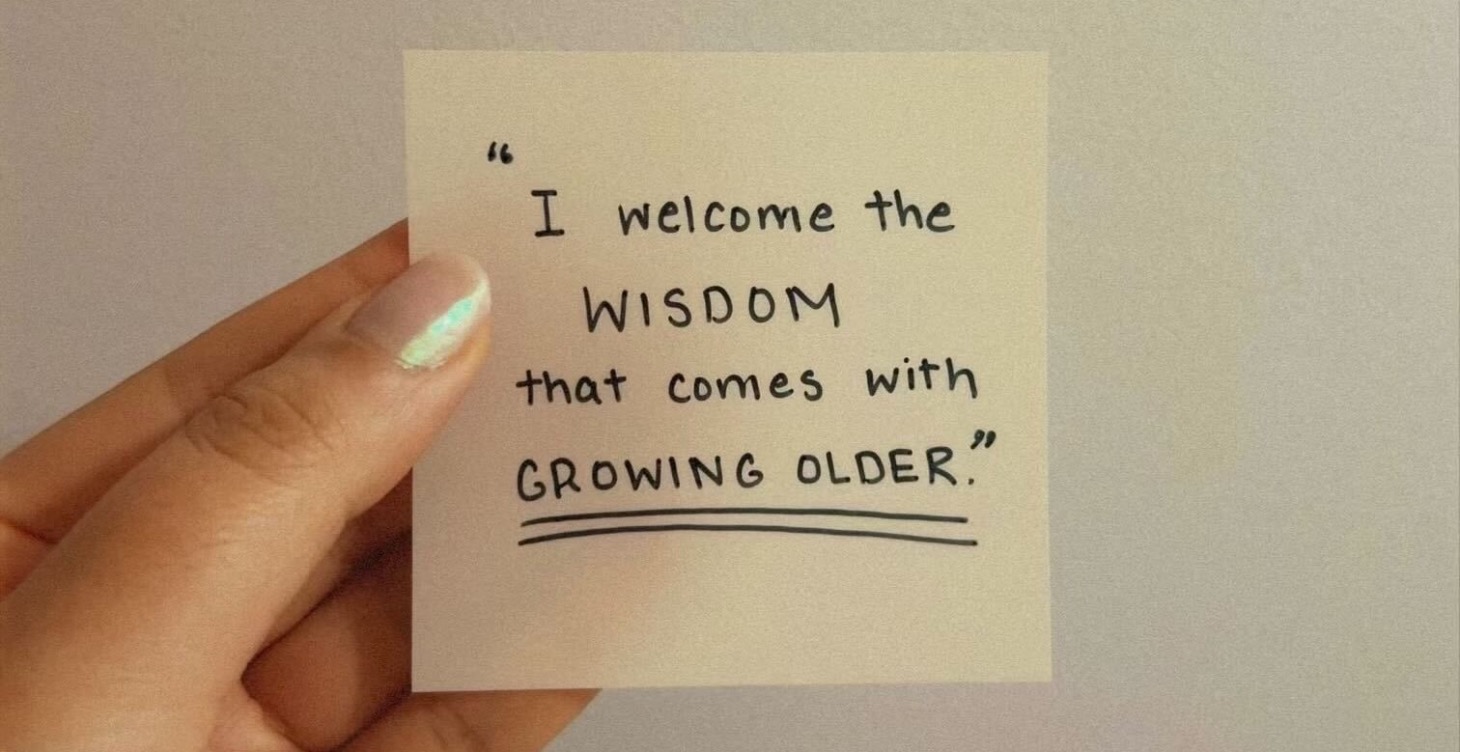 “
I welcome the
WISDOM
that comes with
GROWING OLDER.”